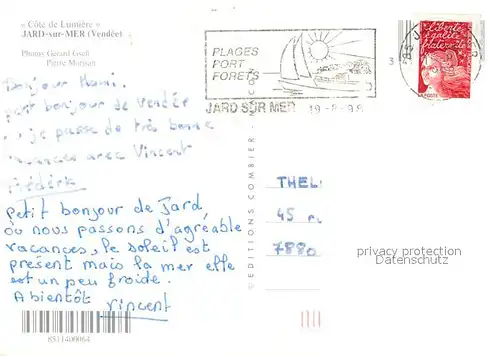 « Côte de Lumière »
JARD-sur-MER (Vendée)
Photos Gérard Gsell
Pierre Morisan
Bonjour Mami.
petit bonjour de Vendée
où je passe de très bonne
vacances avec Vincent
Frédéric
petit bonjour de Jard
où nous passons d'agréable
vacances, le soleil est
présent mais la mer elle
est un peu froide.
A bientôt Vincent
8511400064
©EDITIONS COMBIER
PLAGES
PORT
FORETS
JARD SUR MER 19-8-98
3
85 J
Liberté
égalité
fraternité
LA POSTE
THEL
45
7880
privacy protection
Datenschutz